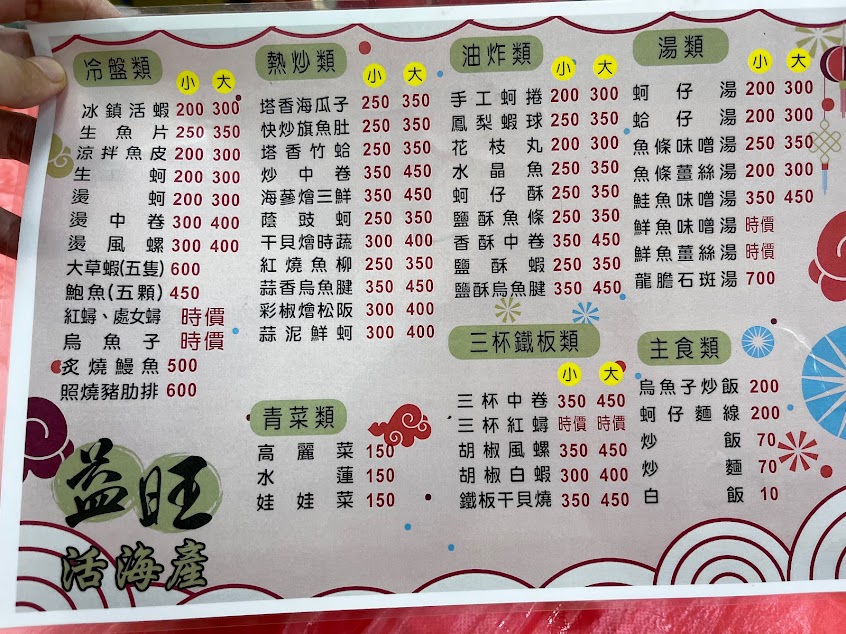 冷盤類 小 大
冰鎮活蝦 200 300
生魚片 250 350
涼拌魚皮 200 300
生蚵 200 300
燙蚵 200 300
燙中卷 300 400
燙風螺 300 400
大草蝦(五隻) 600
鮑魚(五顆) 450
紅蟳、處女蟳 時價
烏魚子 時價
炙燒鰻魚 500
照燒豬肋排 600
益旺
活海產
熱炒類 小 大
塔香海瓜子 250 350
快炒旗魚肚 250 350
塔香竹蛤 250 350
炒中卷 350 450
海蔘燴三鮮 350 450
蔭豉蚵 250 350
干貝燴時蔬 300 400
紅燒魚柳 250 350
蒜香烏魚腱 350 450
彩椒燴松阪 300 400
蒜泥鮮蚵 300 400
青菜類
高麗菜 150
水蓮 150
娃娃菜 150
油炸類 小 大
手工蚵捲 200 300
鳳梨蝦球 250 350
花枝丸 200 300
水晶魚 250 350
蚵仔酥 250 350
鹽酥魚條 250 350
香酥中卷 350 450
鹽酥蝦 250 350
鹽酥烏魚腱 350 450
三杯鐵板類
小 大
三杯中卷 350 450
三杯紅蟳 時價 時價
胡椒風螺 350 450
胡椒白蝦 300 400
鐵板干貝燒 350 450
湯類 小 大
蚵仔湯 200 300
蛤仔湯 200 300
魚條味噌湯 250 350
魚條薑絲湯 200 300
鮭魚味噌湯 350 450
鮮魚味噌湯 時價
鮮魚薑絲湯 時價
龍膽石斑湯 700
主食類
烏魚子炒飯 200
蚵仔麵線 200
炒飯 70
炒麵 70
白飯 10